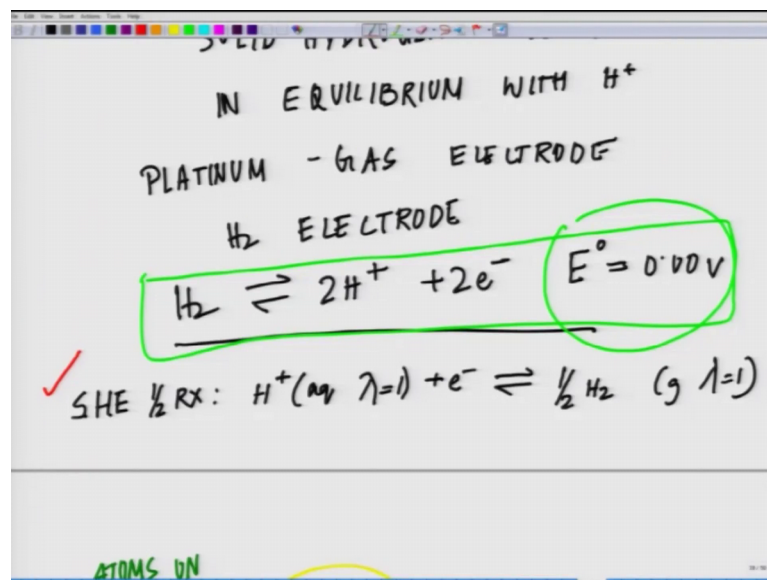 File Edit View Insert Actions Tools Help
SOLID
IN EQUILIBRIUM WITH H⁺
PLATINUM - GAS ELELTRODE
H₂ ELELCTRODE
H₂ ⇌ 2H⁺ + 2e⁻ E° = 0.00 V
SHE ½ RX: H⁺(aq λ=1) + e⁻ ⇌ ½ H₂ (g λ=1)
ATOMS ON